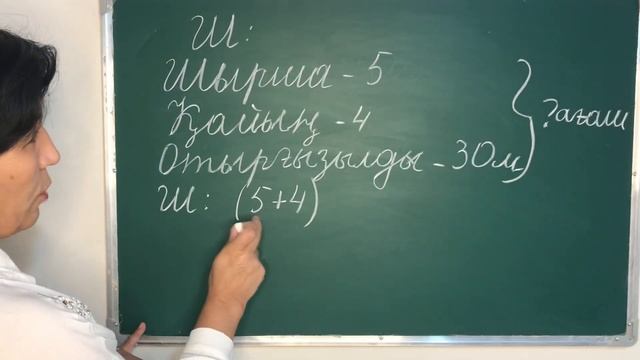 Ш:
Шырша - 5
Қайың - 4
Отырғызылды - 30м
? ағаш
Ш: (5+4)